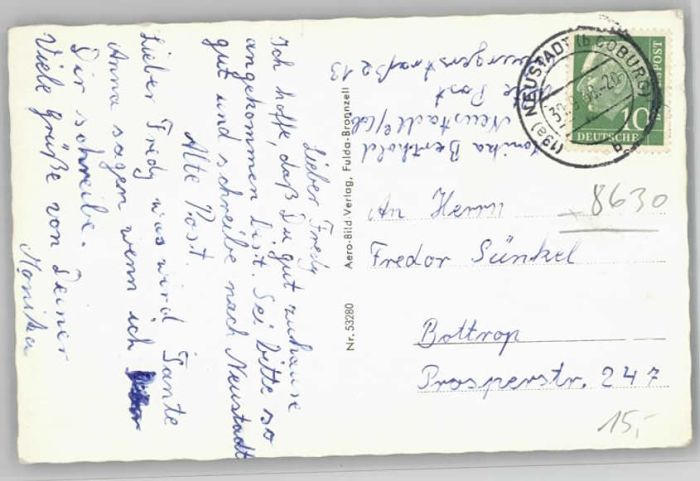 Lieber Fredy
Ich hoffe, daß Du gut zuhause
angekommen bist. Sei bitte so
gut und schreibe nach Neustadt
Alte Post.
Lieber Fredy was wird Tante
Anna sagen wenn ich
Dir schreibe.
Viele Grüße von Deiner
Monika
Monika Berthold
Neustadt/Cob
Post
13
Nr. 53280 Aero-Bild Verlag, Fulda-Bronnzell
(13a) NEUSTADT (b COBURG)
DEUTSCHE BUNDESPOST
10
8630
An Herrn
Fredor Sünkel
Bottrop
Prosperstr. 247
15,-